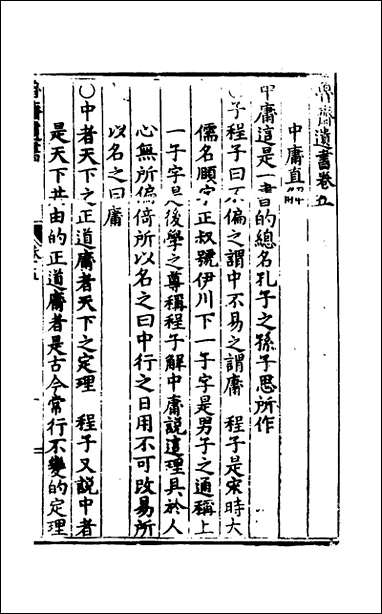 魯齋遺書卷五
中庸直解
中庸這是一書的總名孔子之孫子思所作
〇子程子曰不偏之謂中不易之謂庸 程子是宋時大
儒名頤字正叔號伊川下一子字是男子之通稱上
一子字是後學之尊稱程子解中庸說這理具於人
心無所偏倚所以名之曰中行之日用不可改易所
以名之曰庸
〇中者天下之正道庸者天下之定理 程子又說中者
是天下共由的正道庸者是古今常行不變的定理